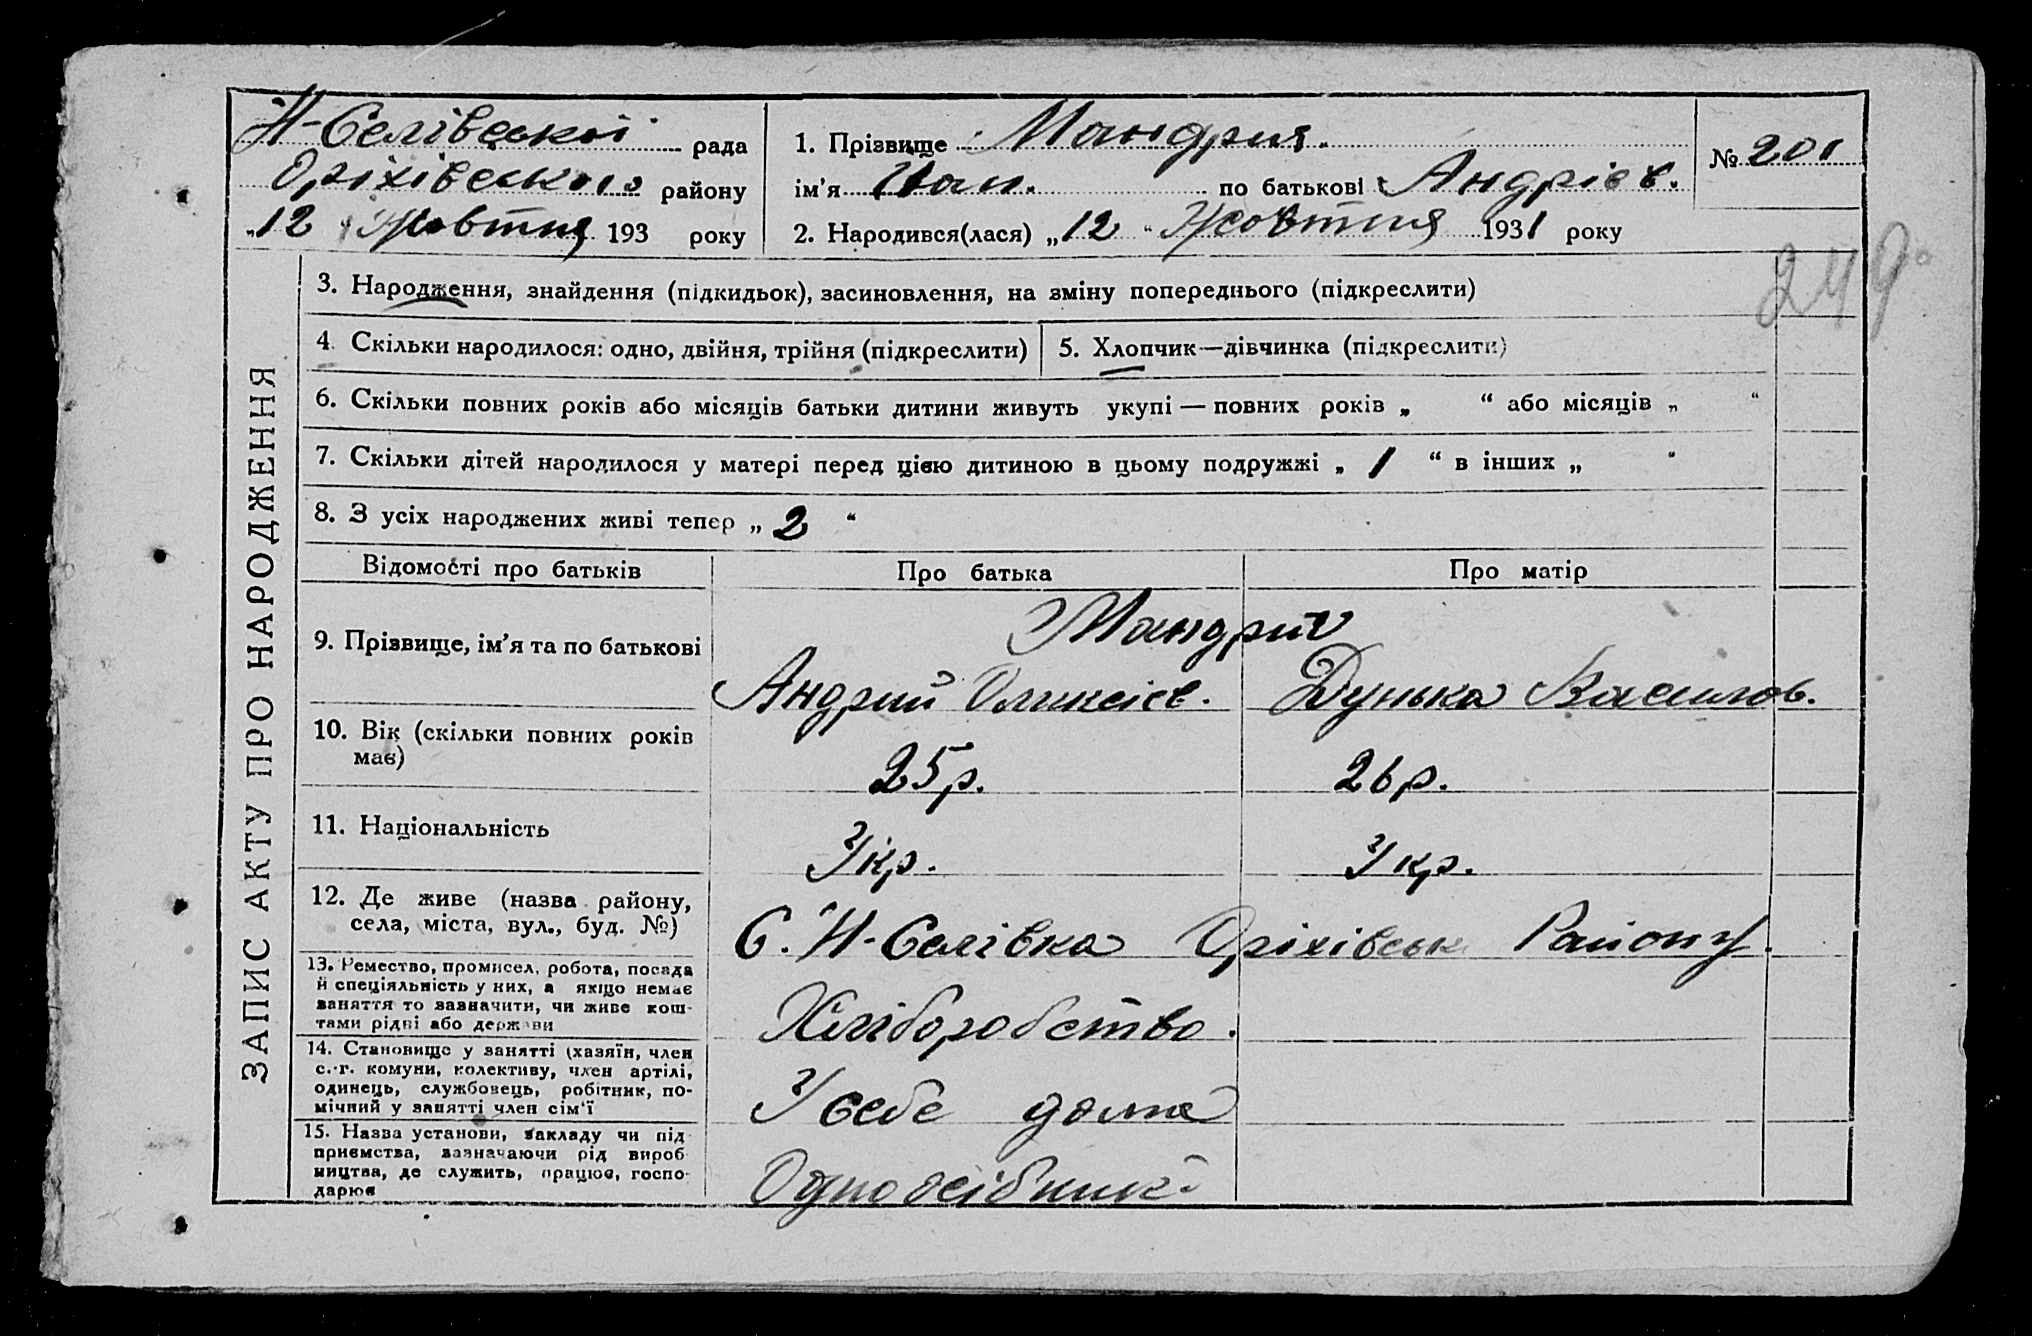 Н-Селівської рада
Оріхівського району
„12 " Жовтня 193 року
1. Прізвище Мандрия.
ім'я Иван. по батькові Андріев.
2. Народився(лася) „12 " Жовтня 1931 року
№ 201
249
ЗАПИС АКТУ ПРО НАРОДЖЕННЯ
3. Народження, знайдення (підкидьок), засиновлення, на зміну попереднього (підкреслити)
4. Скільки народилося: одно, двійня, трійня (підкреслити)
5. Хлопчик—дівчинка (підкреслити)
6. Скільки повних років або місяців батьки дитини живуть укупі — повних років „ “ або місяців „ “
7. Скільки дітей народилося у матері перед цією дитиною в цьому подружжі „ 1 “ в інших „ “
8. З усіх народжених живі тепер „ 2 “
Відомості про батьків
Про батька
Про матір
9. Прізвище, ім'я та по батькові
Мандрия
Андрий Олексієв.
Дунька Василов.
10. Вік (скільки повних років
має)
25р.
26р.
11. Національність
Укр.
Укр.
12. Де живе (назва району,
села, міста, вул., буд. №)
С. Н-Селівка Оріхівськ Району.
13. Ремество, промисел, робота, посада
й спеціяльність у них, а якщо немає
заняття то зазначити, чи живе кош-
тами рідні або держави
Хліборобство.
14. Становище у занятті (хазяїн, член
с.-г. комуни, колективу, член артілі,
одинець, службовець, робітник, по-
мічний у занятті член сім'ї
У себе дома
15. Назва установи, закладу чи під
приємства, зазначаючи рід вироб
ництва, де служить, працює, госпо-
дарює
Одноосібник